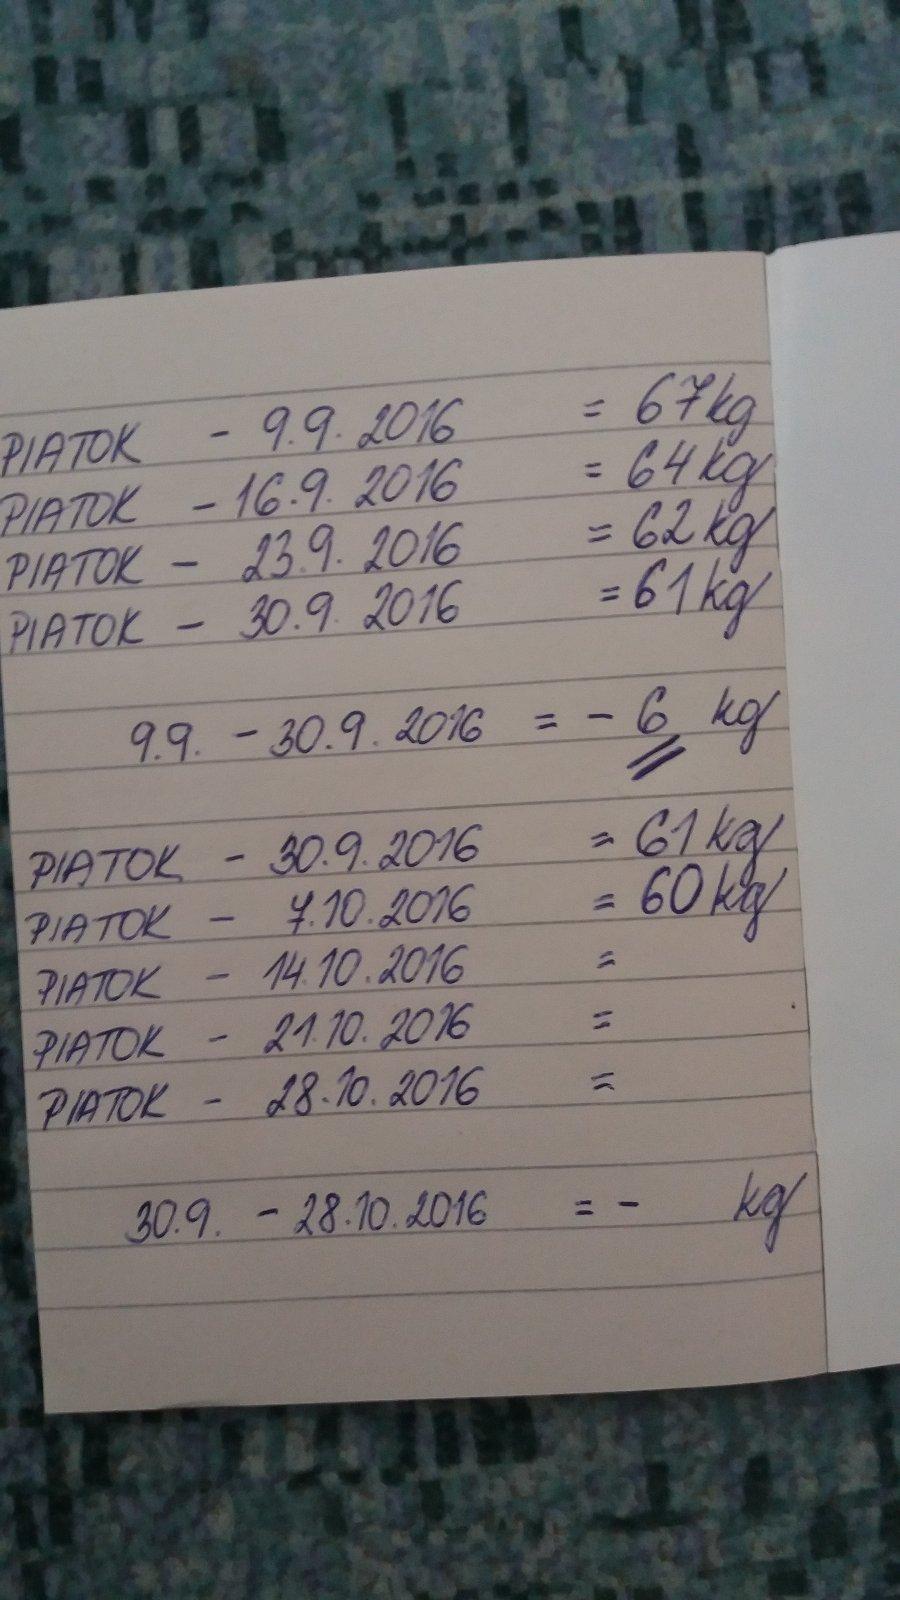 PIATOK - 9.9. 2016 = 67kg
PIATOK - 16.9. 2016 = 64kg
PIATOK - 23.9. 2016 = 62kg
PIATOK - 30.9. 2016 = 61kg
9.9. - 30.9. 2016 = - 6 kg
PIATOK - 30.9.2016 = 61kg
PIATOK - 7.10.2016 = 60kg
PIATOK - 14.10.2016 =
PIATOK - 21.10.2016 =
PIATOK - 28.10.2016 =
30.9. - 28.10.2016 = - kg